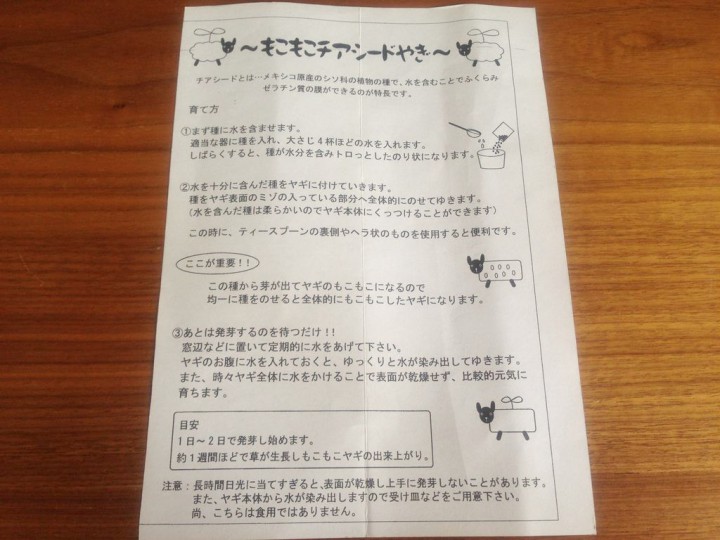 ～もこもこチアシードやぎ～
チアシードとは…メキシコ原産のシソ科の植物の種で、水を含むことでふくらみ
ゼラチン質の膜ができるのが特長です。
育て方
①まず種に水を含ませます。
適当な器に種を入れ、大さじ4杯ほどの水を入れます。
しばらくすると、種が水分を含みトロっとしたのり状になります。
②水を十分に含んだ種をヤギに付けていきます。
種をヤギ表面のミゾの入っている部分へ全体的にのせてゆきます。
(水を含んだ種は柔らかいのでヤギ本体にくっつけることができます)
この時に、ティースプーンの裏側やヘラ状のものを使用すると便利です。
ここが重要！！
この種から芽が出てヤギのもこもこになるので
均一に種をのせると全体的にもこもこしたヤギになります。
③あとは発芽するのを待つだけ！！
窓辺などに置いて定期的に水をあげて下さい。
ヤギのお腹に水を入れておくと、ゆっくりと水が染み出してゆきます。
また、時々ヤギ全体に水をかけることで表面が乾燥せず、比較的元気に
育ちます。
目安
1日～2日で発芽し始めます。
約1週間ほどで草が生長しもこもこヤギの出来上がり。
注意：長時間日光に当てすぎると、表面が乾燥し上手に発芽しないことがあります。
また、ヤギ本体から水が染み出しますので受け皿などをご用意下さい。
尚、こちらは食用ではありません。